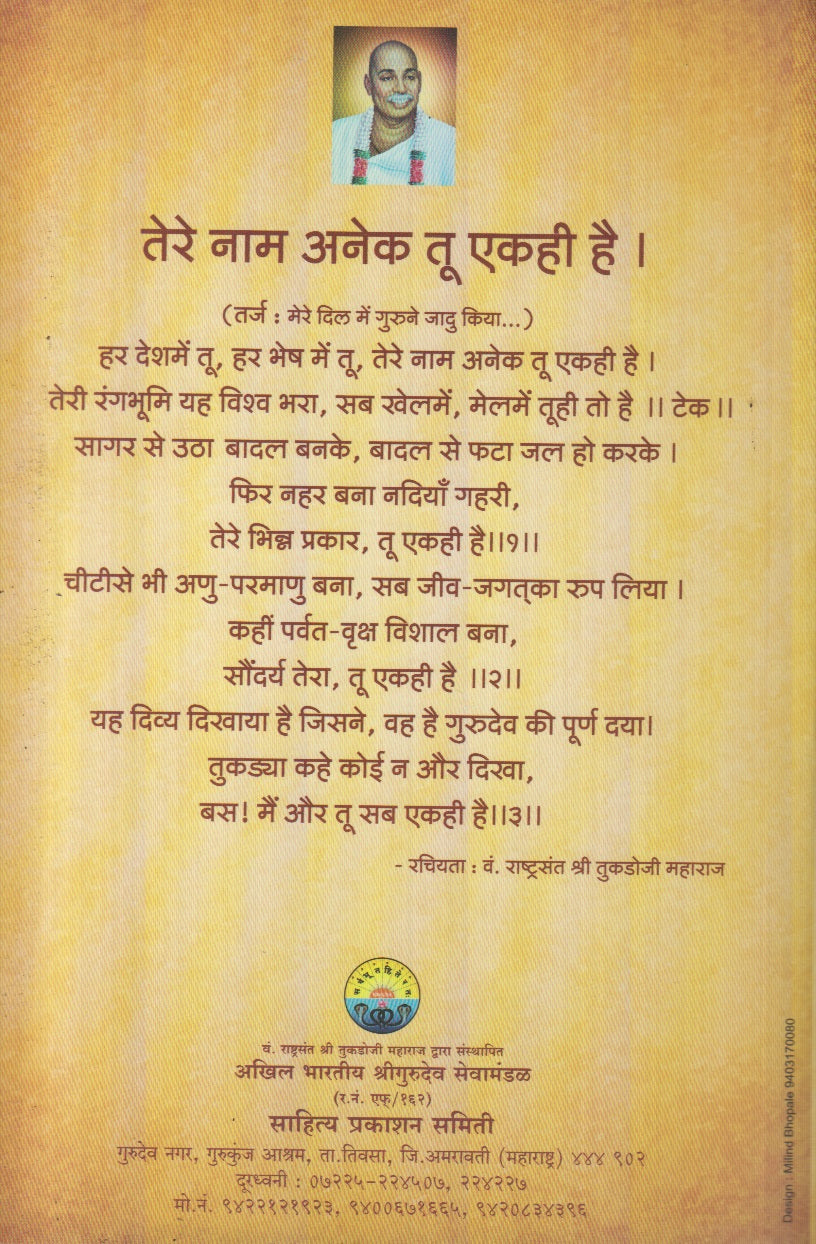 तेरे नाम अनेक तू एकही है ।
(तर्ज : मेरे दिल में गुरुने जादु किया...)
हर देशमें तू, हर भेष में तू, तेरे नाम अनेक तू एकही है ।
तेरी रंगभूमि यह विश्व भरा, सब खेलमें, मेलमें तूही तो है ।। टेक ।।
सागर से उठा बादल बनके, बादल से फटा जल हो करके ।
फिर नहर बना नदियाँ गहरी,
तेरे भिन्न प्रकार, तू एकही है।।१।।
चीटीसे भी अणु-परमाणु बना, सब जीव-जगत्‌का रुप लिया ।
कहीं पर्वत-वृक्ष विशाल बना,
सौंदर्य तेरा, तू एकही है ।।२।।
यह दिव्य दिखाया है जिसने, वह है गुरुदेव की पूर्ण दया।
तुकड्या कहे कोई न और दिखा,
बस! मैं और तू सब एकही है।।३।।
- रचियता : वं. राष्ट्रसंत श्री तुकडोजी महाराज
सर्व भूत हिते रतः
वं. राष्ट्रसंत श्री तुकडोजी महाराज द्वारा संस्थापित
अखिल भारतीय श्रीगुरुदेव सेवामंडळ
(र.नं. एफ्/१६२)
साहित्य प्रकाशन समिती
गुरुदेव नगर, गुरुकुंज आश्रम, ता.तिवसा, जि.अमरावती (महाराष्ट्र) ४४४ ९०२
दूरध्वनी : ०७२२५-२२४५०७, २२४२२७
मो.नं. ९४२२१२१९२३, ९४००६७१६६५, ९४२०८३४३९६
Design : Milind Bhopale 9403170080